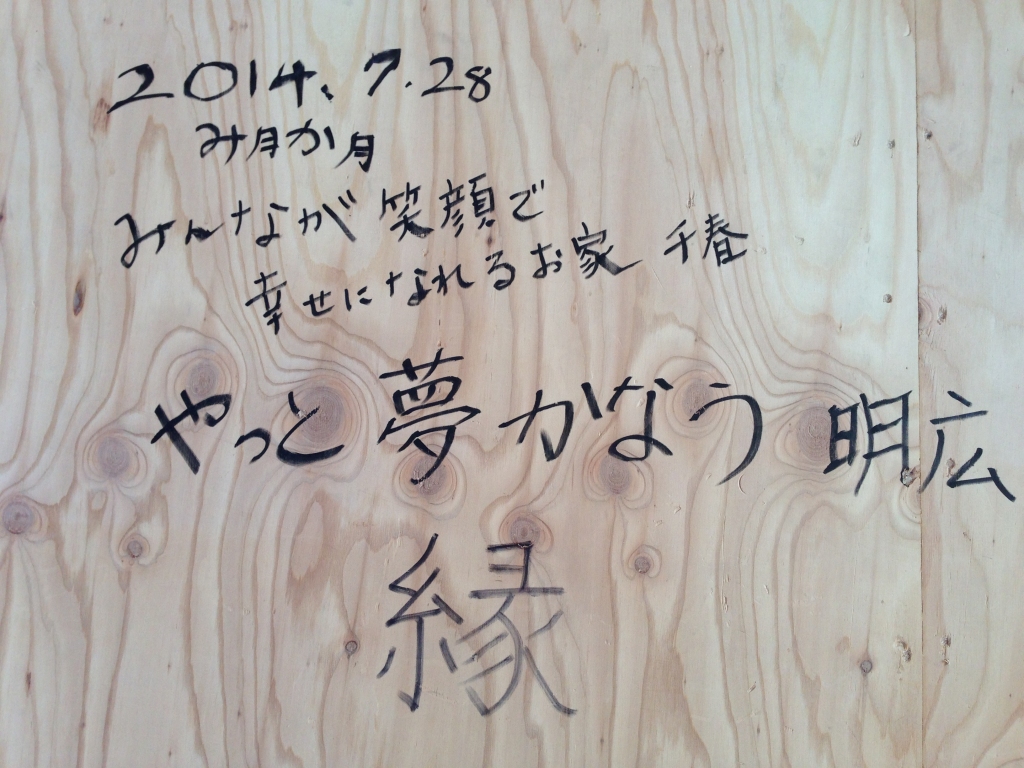 2014、7.28
み月か月
みんなが笑顔で
幸せになれるお家 千春
やっと夢かなう 明広
縁